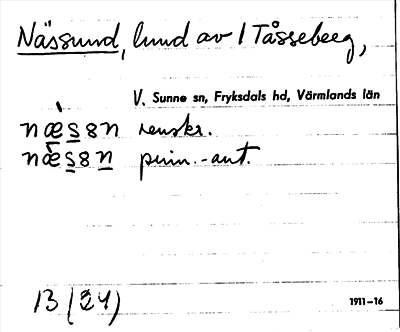 Nässund, lund av 1 Tåsseberg,
V. Sunne sn, Fryksdals hd, Värmlands län
næs8n renskr.
næs8n prim.-ant.
13 (34)
1911–16